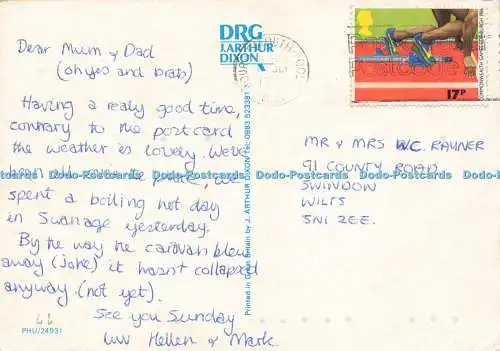 Dear Mum & Dad
(oh yes and brats)
Having a really good time,
contrary to the postcard
the weather is lovely. We've
been all over the place, we
spent a boiling hot day
in Swanage yesterday.
By the way the caravan blew
away (joke) it hasn't collapsed
anyway (not yet).
See you Sunday
luv Hellen & Mark.
66
PHU/24931
DRG
J. ARTHUR
DIXON
Printed in Great Britain by J. ARTHUR DIXON Tel: 0983 523381
COMMONWEALTH GAMES EDINBURGH 1986
17P
MR & MRS W.C. RAYNER
91 COUNTY ROAD
SWINDON
WILTS
SN1 2EE.
Dodo-Postcards Dodo-Postcards Dodo-Postcards Dodo-Postcards Dodo-Postcards